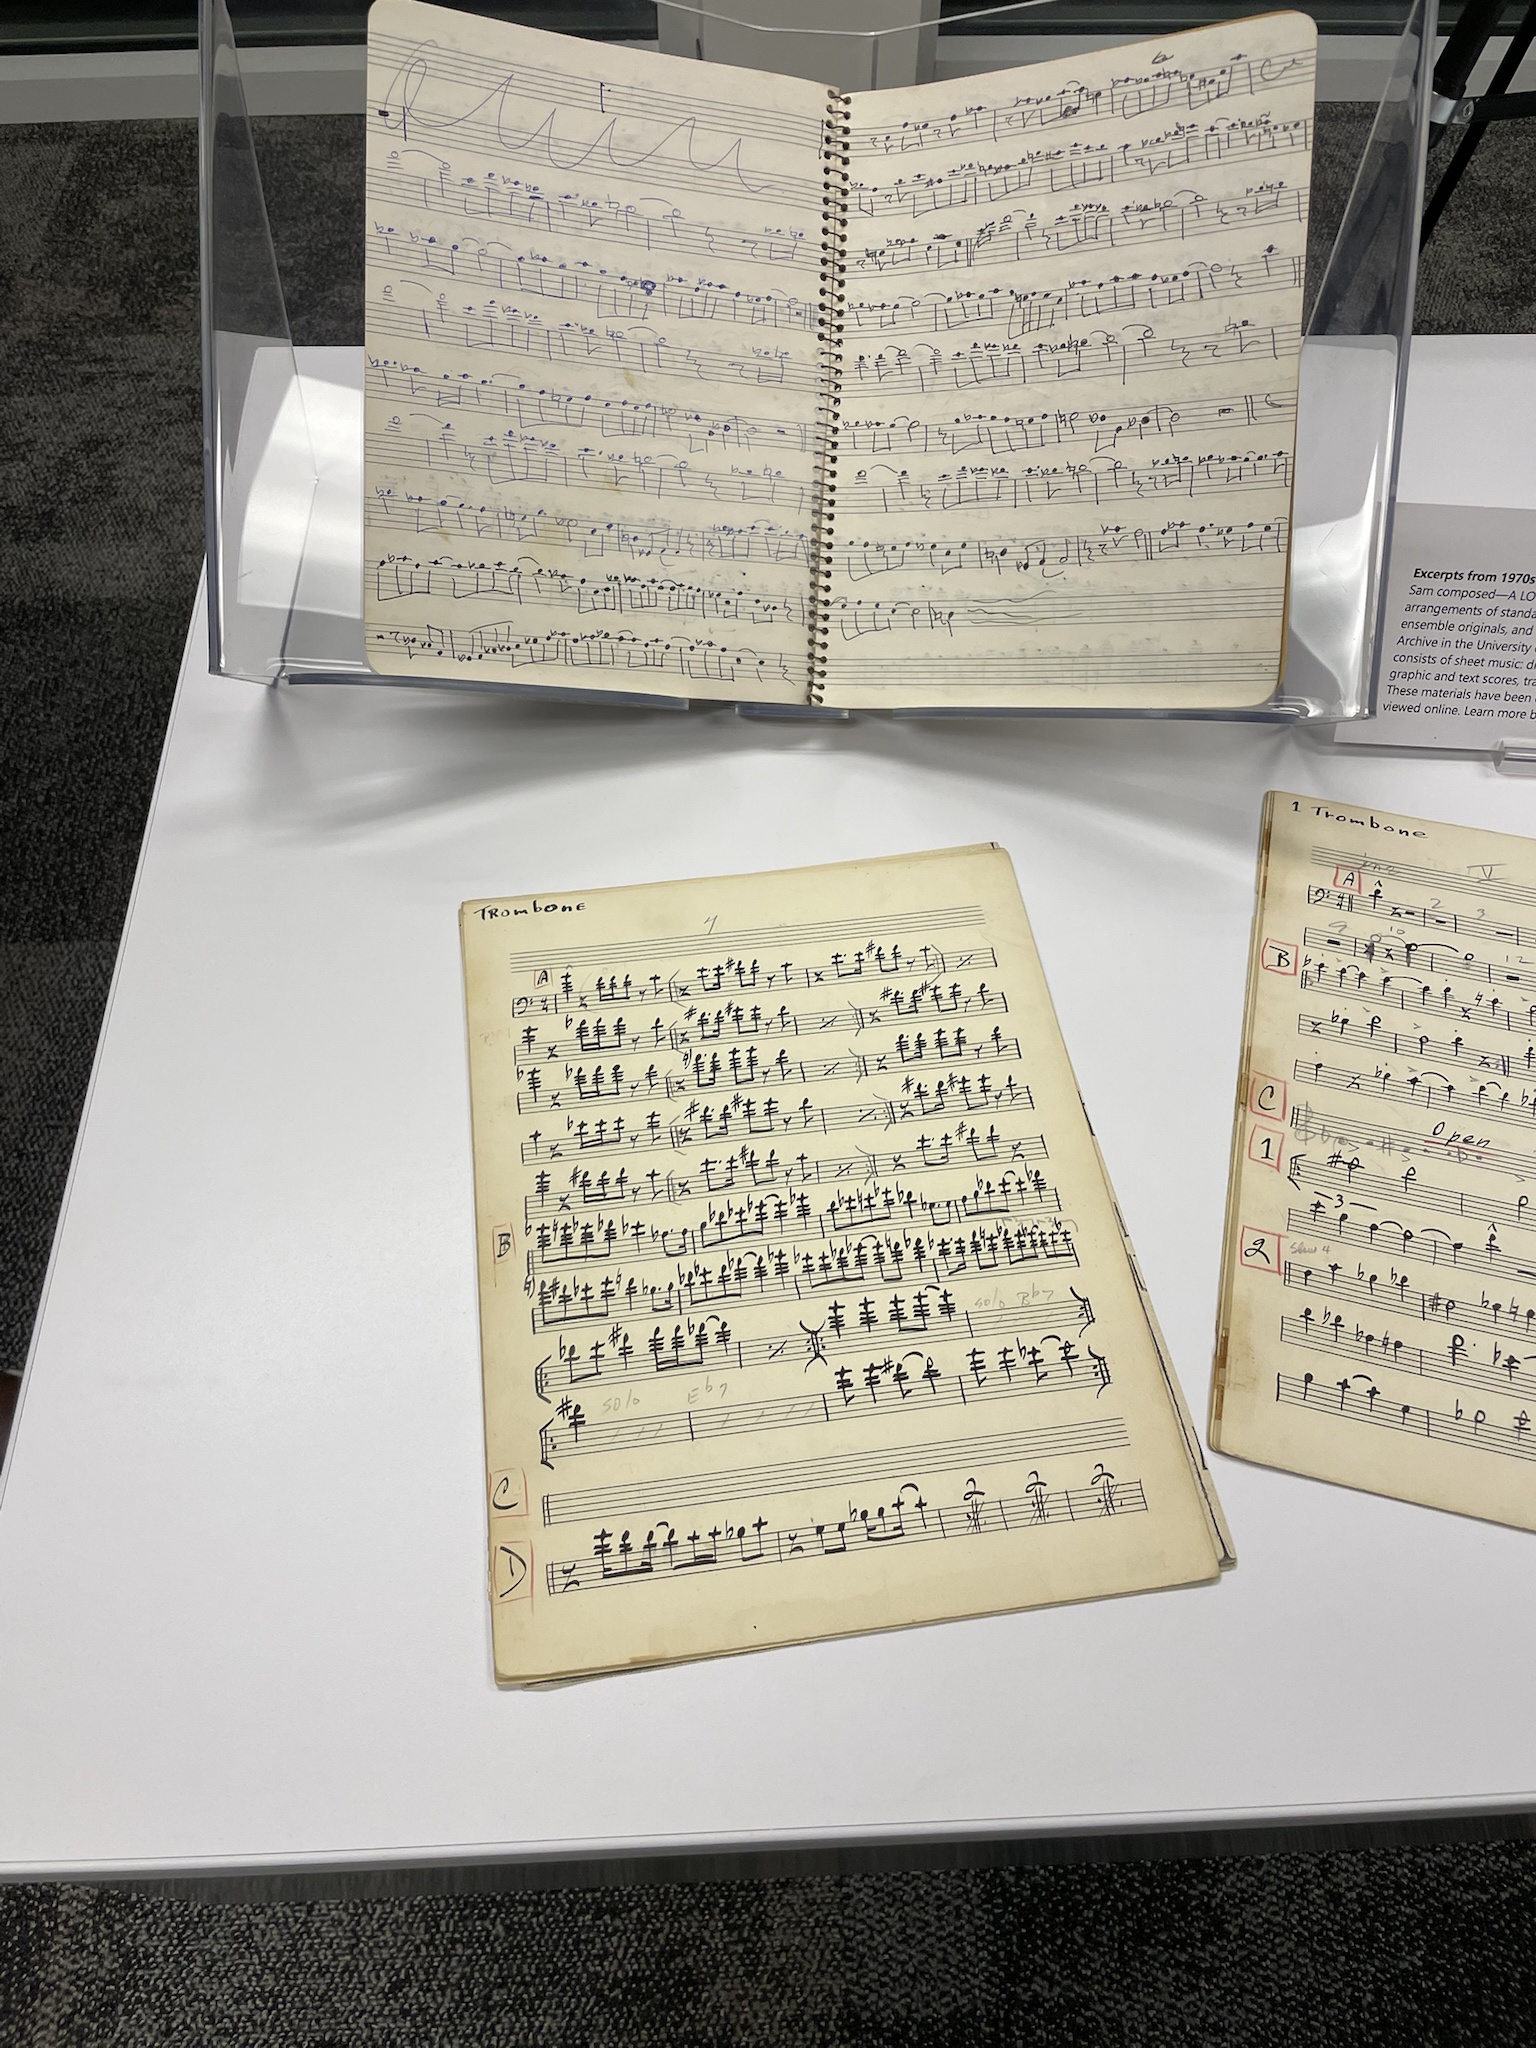 Excerpts from 1970s
Sam composed—A LO
arrangements of standa
ensemble originals, and
Archive in the University
consists of sheet music: d
graphic and text scores, tra
These materials have been
viewed online. Learn more b
TROMBONE
4
A
B
solo Bb7
solo Eb7
C
D
2 2 2
1 Trombone
V
A
2 3
9 10 12
B
C
Open
1
3
2
Slow 4